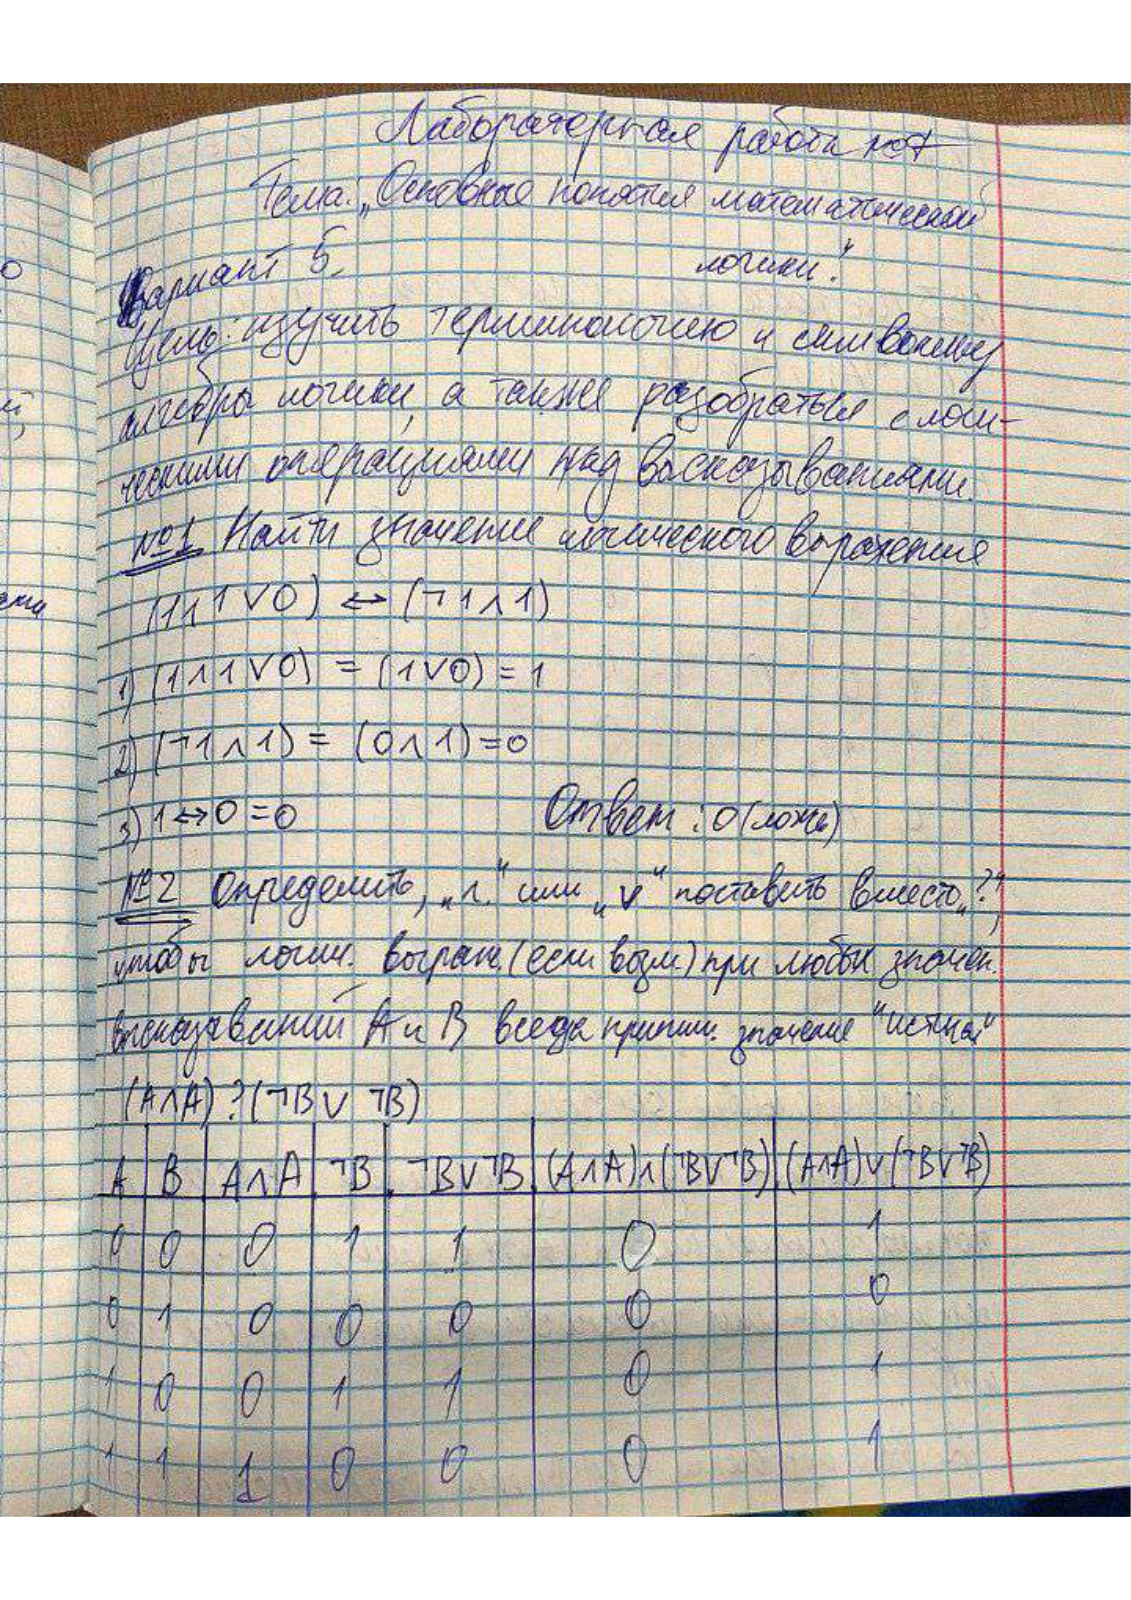 Лабораторная работа №7
Тема: „Основные понятия математической
логики."
Вариант 5
Цель: изучить терминологию и символику
алгебры логики, а также разобраться с логи-
ческими операциями над высказываниями.
№1 Найти значение логического выражения
(1∧1∨0) ↔ (¬1∧1)
1) (1∧1∨0) = (1∨0) = 1
2) (¬1∧1) = (0∧1) = 0
3) 1↔0 = 0 Ответ: 0 (ложь)
№2 Определить, „∧" или „∨" поставить вместо „?",
чтобы логич. выраж. (если возм.) при любых значен.
высказываний A и B всегда приним. значение "истина"
(A∧A) ? (¬B∨ ¬B)
A B A∧A ¬B ¬B∨¬B (A∧A)∧(¬B∨¬B) (A∧A)∨(¬B∨¬B)
0 0 0 1 1 0 1
0 1 0 0 0 0 0
1 0 0 1 1 0 1
1 1 1 0 0 0 1